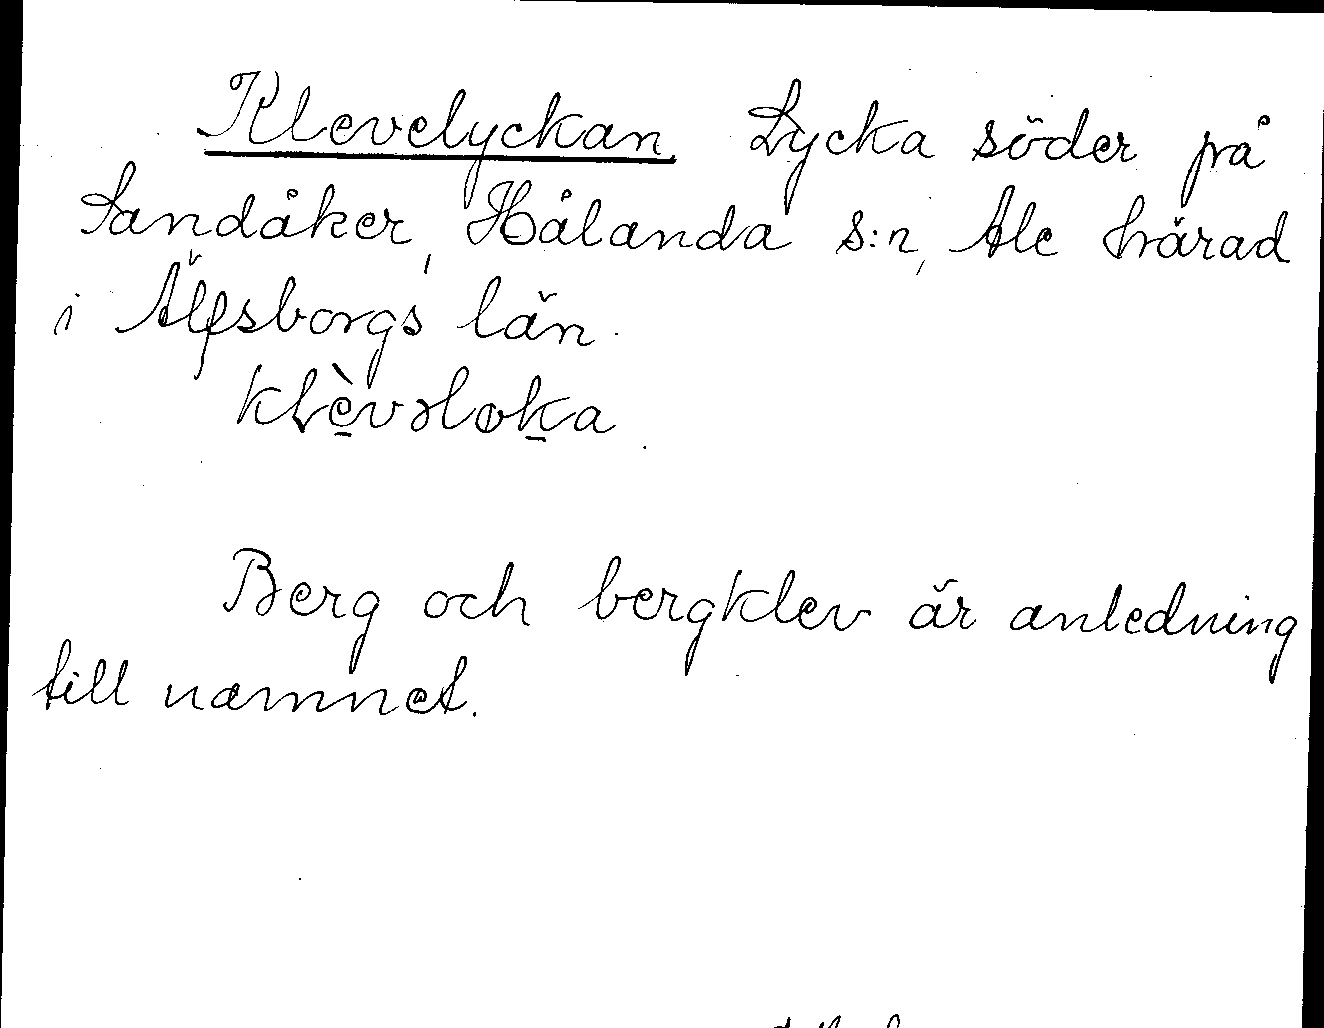 Klevelyckan Lycka söder på
Sandåker, Hålanda s:n, Ale härad
i Älfsborgs län.
Berg och bergklev är anledning
till namnet.